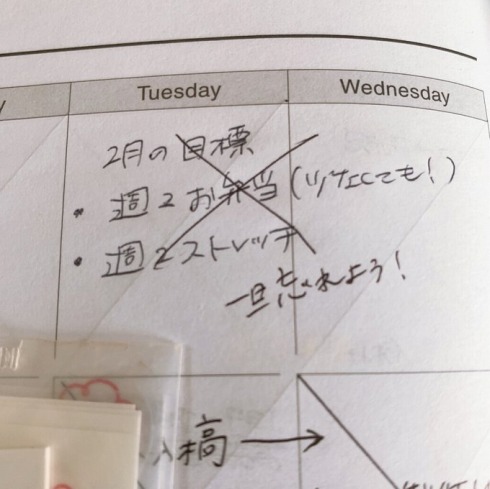 Tuesday
Wednesday
2月の目標
・週2お弁当(
でも!)
・週2ストレッチ
一旦忘れよう!
入稿→